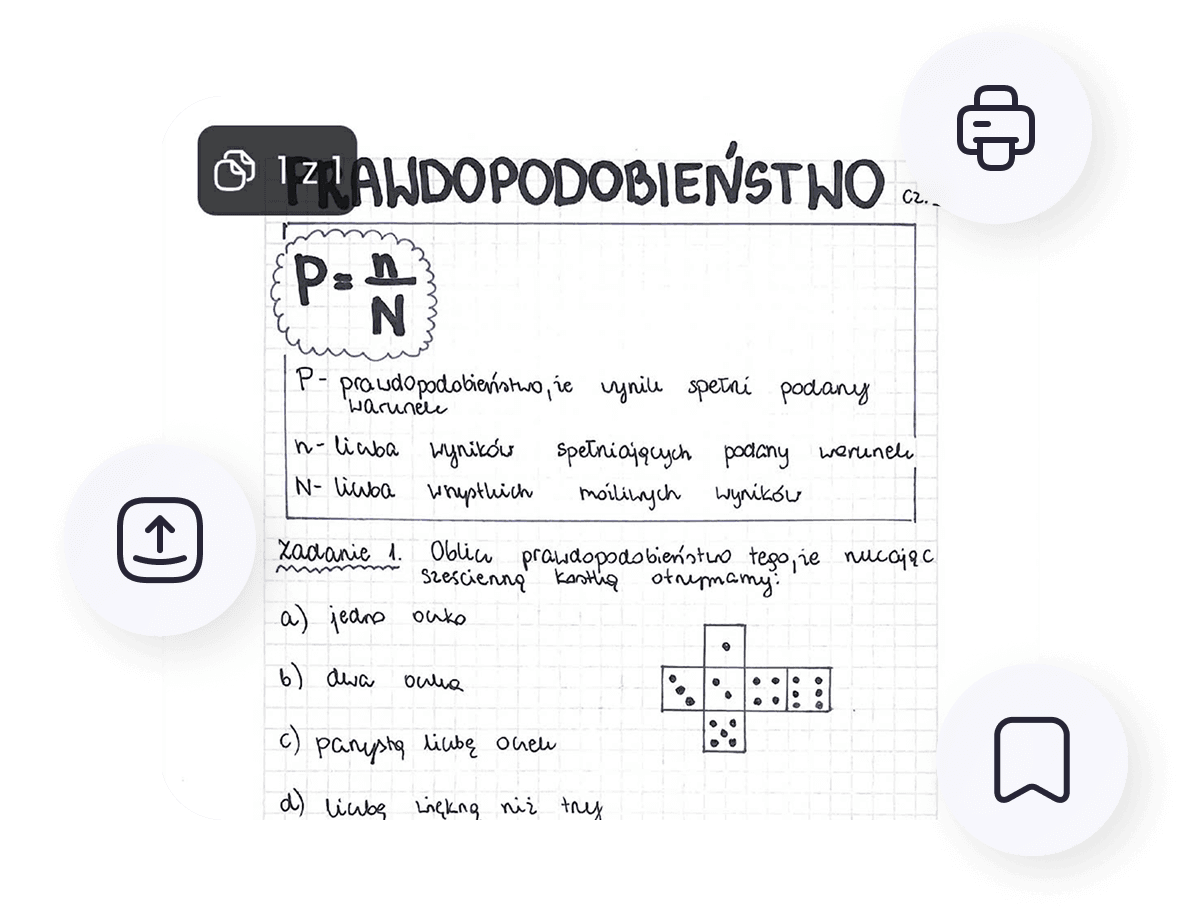 1 z 1
PRAWDOPODOBIEŃSTWO cz.
P = n
N
P - prawdopodobieństwo, że wynik spełni podany
warunek
n - liczba wyników spełniających podany warunek
N - liczba wszystkich możliwych wyników
Zadanie 1. Oblicz prawdopodobieństwo tego, że rzucając
sześcienną kostką otrzymamy:
a) jedno oczko
b) dwa oczka
c) parzystą liczbę oczek
d) liczbę większą niż trzy